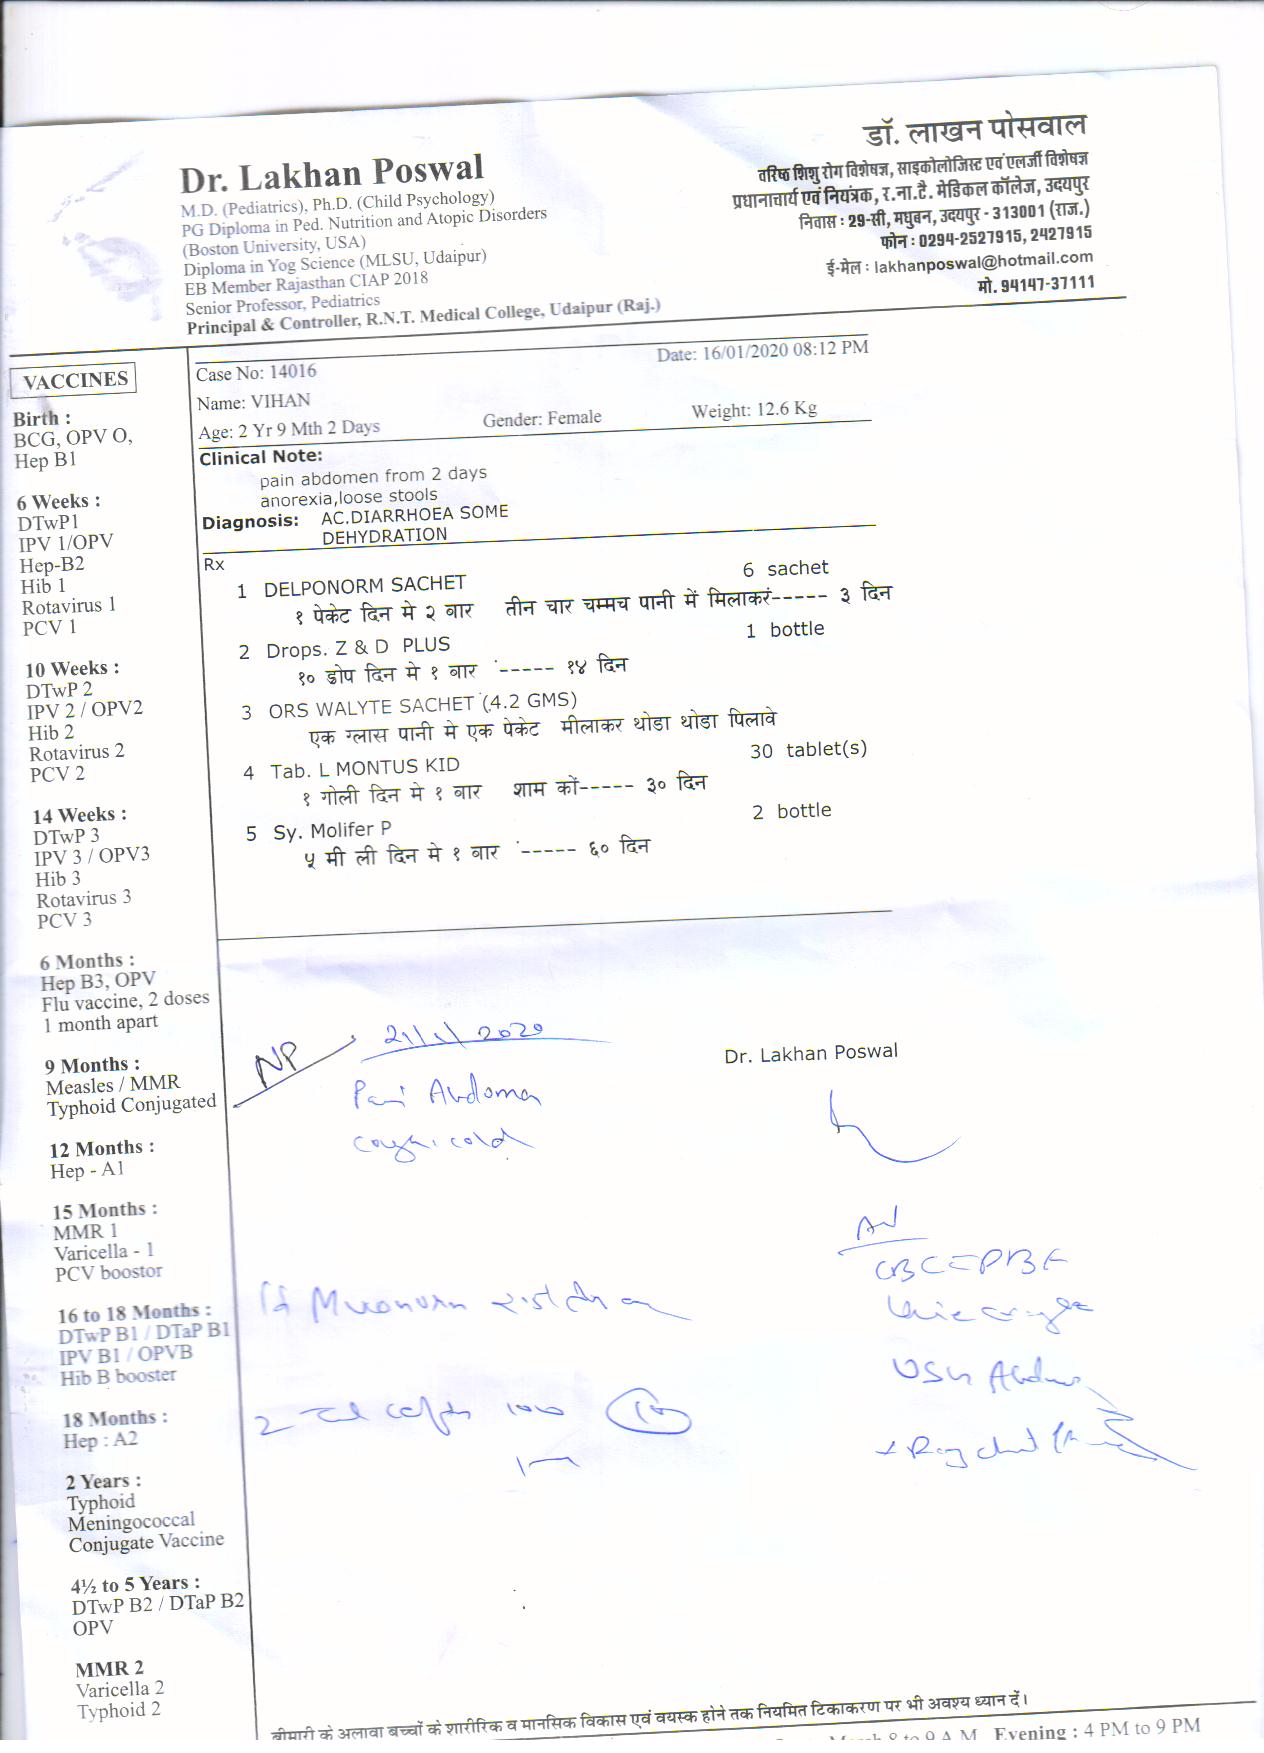 डॉ. लाखन पोसवाल
वरिष्ठ शिशु रोग विशेषज्ञ, साइकोलोजिस्ट एवं एलर्जी विशेषज्ञ
प्रधानाचार्य एवं नियंत्रक, र.ना.टै. मेडिकल कॉलेज, उदयपुर
निवास : 29-सी, मधुबन, उदयपुर - 313001 (राज.)
फोन : 0294-2527915, 2427915
ई-मेल : lakhanposwal@hotmail.com
मो. 94147-37111
Dr. Lakhan Poswal
M.D. (Pediatrics), Ph.D. (Child Psychology)
PG Diploma in Ped. Nutrition and Atopic Disorders
(Boston University, USA)
Diploma in Yog Science (MLSU, Udaipur)
EB Member Rajasthan CIAP 2018
Senior Professor, Pediatrics
Principal & Controller, R.N.T. Medical College, Udaipur (Raj.)
VACCINES
Birth :
BCG, OPV O,
Hep B1
6 Weeks :
DTwP1
IPV 1/OPV
Hep-B2
Hib 1
Rotavirus 1
PCV 1
10 Weeks :
DTwP 2
IPV 2 / OPV2
Hib 2
Rotavirus 2
PCV 2
14 Weeks :
DTwP 3
IPV 3 / OPV3
Hib 3
Rotavirus 3
PCV 3
6 Months :
Hep B3, OPV
Flu vaccine, 2 doses
1 month apart
9 Months :
Measles / MMR
Typhoid Conjugated
12 Months :
Hep - A1
15 Months :
MMR 1
Varicella - 1
PCV boostor
16 to 18 Months :
DTwP B1 / DTaP B1
IPV B1 / OPVB
Hib B booster
18 Months :
Hep : A2
2 Years :
Typhoid
Meningococcal
Conjugate Vaccine
4½ to 5 Years :
DTwP B2 / DTaP B2
OPV
MMR 2
Varicella 2
Typhoid 2
Date: 16/01/2020 08:12 PM
Case No: 14016
Name: VIHAN
Age: 2 Yr 9 Mth 2 Days Gender: Female Weight: 12.6 Kg
Clinical Note:
pain abdomen from 2 days
anorexia,loose stools
Diagnosis: AC.DIARRHOEA SOME
DEHYDRATION
Rx
1 DELPONORM SACHET 6 sachet
१ पेकेट दिन मे २ बार तीन चार चम्मच पानी में मिलाकरं----- ३ दिन
2 Drops. Z & D PLUS 1 bottle
१० ड्रोप दिन मे १ बार ----- १४ दिन
3 ORS WALYTE SACHET (4.2 GMS)
एक ग्लास पानी मे एक पेकेट मीलाकर थोडा थोडा पिलावे
4 Tab. L MONTUS KID 30 tablet(s)
१ गोली दिन मे १ बार शाम कों----- ३० दिन
5 Sy. Molifer P 2 bottle
५ मी ली दिन मे १ बार ----- ६० दिन
NP 21/1/2020
Dr. Lakhan Poswal
Pain Abdomen
cough cold
CBC PBF
USG Abdomen
2 100 10
बीमारी के अलावा बच्चों के शारीरिक व मानसिक विकास एवं वयस्क होने तक नियमित टिकाकरण पर भी अवश्य ध्यान दें।
March 8 to 9 A.M. Evening : 4 PM to 9 PM